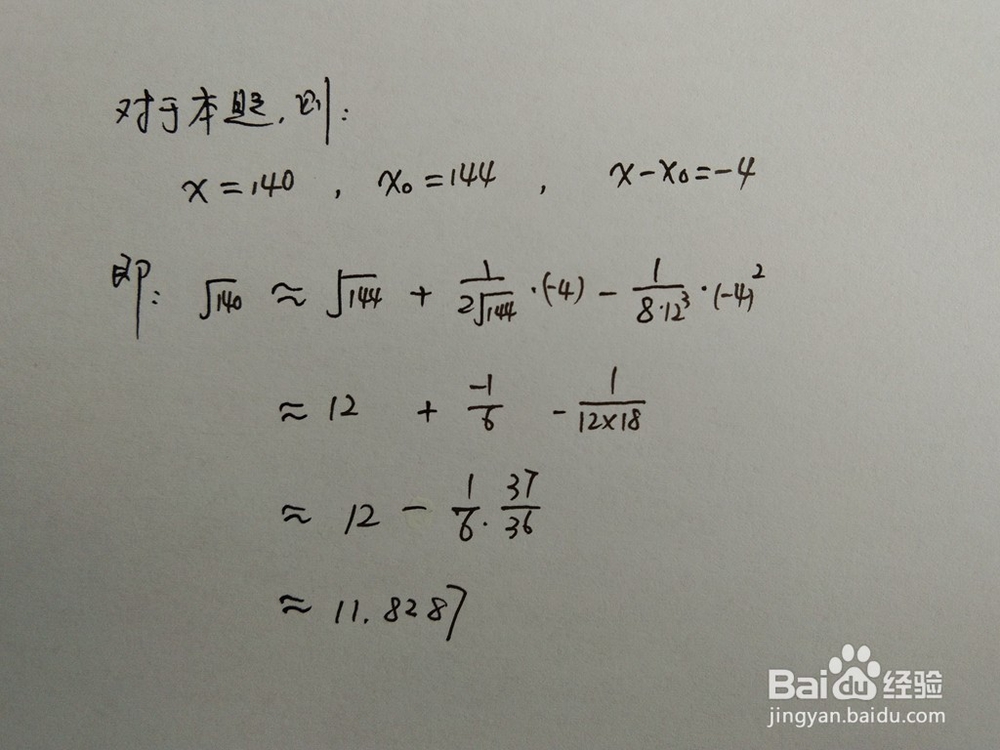 对于本题,则:
x=140 , x₀=144 , x-x₀=-4
即: √140 ≈ √144 + 1/(2√144) ·(-4) - 1/(8·12³) ·(-4)²
≈ 12 + -1/6 - 1/(12×18)
≈ 12 - 1/6 · 37/36
≈ 11.8287
Baidu 经验
jingyan.baidu.com